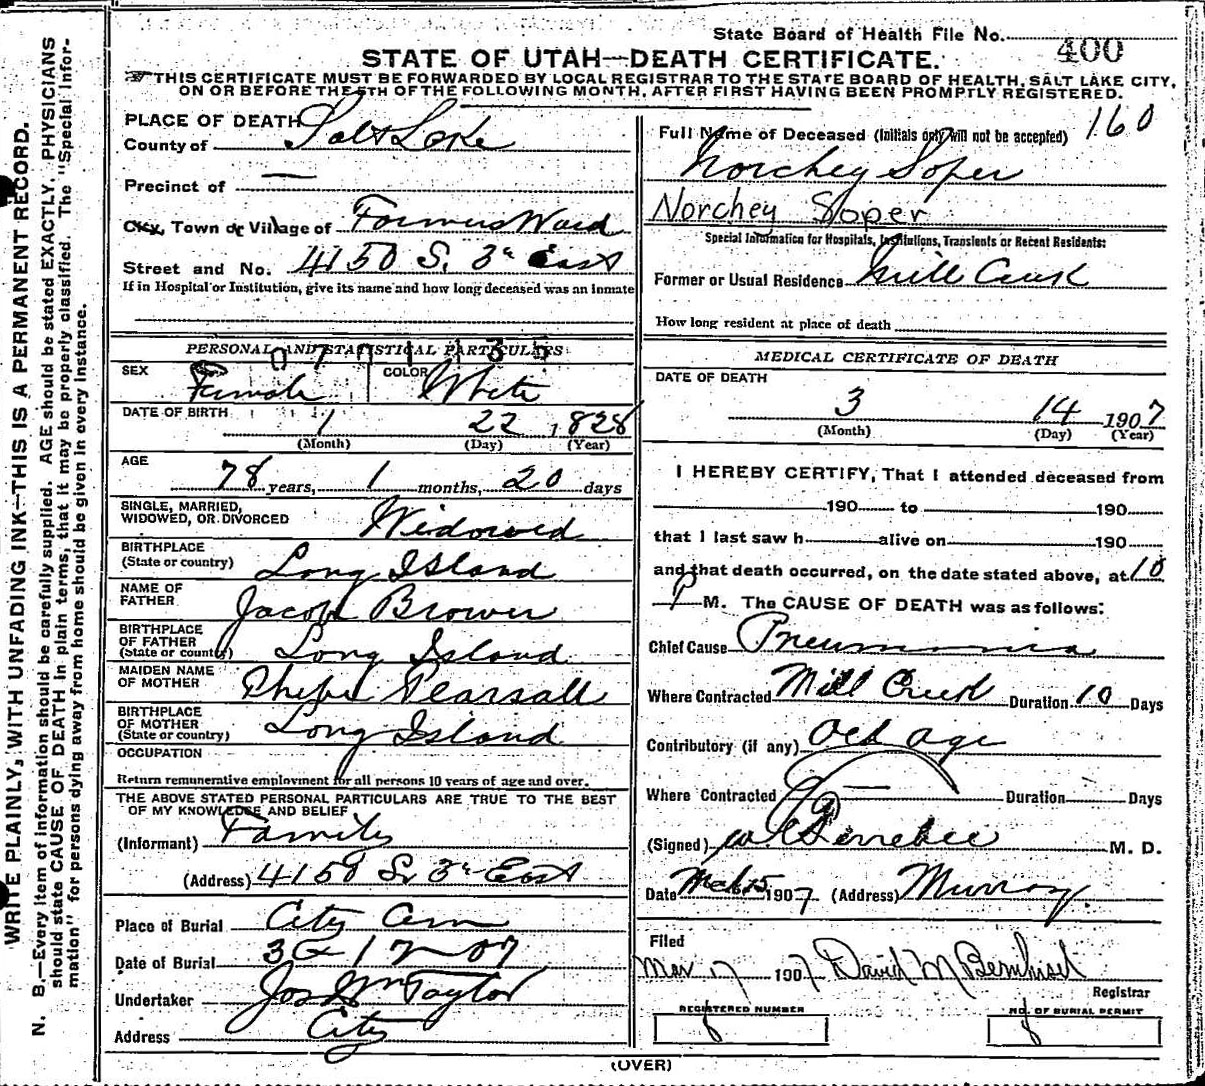 State Board of Health File No. 400
STATE OF UTAH—DEATH CERTIFICATE.
THIS CERTIFICATE MUST BE FORWARDED BY LOCAL REGISTRAR TO THE STATE BOARD OF HEALTH, SALT LAKE CITY,
ON OR BEFORE THE 5TH OF THE FOLLOWING MONTH, AFTER FIRST HAVING BEEN PROMPTLY REGISTERED.
WRITE PLAINLY, WITH UNFADING INK—THIS IS A PERMANENT RECORD.
N. B.—Every item of information should be carefully supplied. AGE should be stated EXACTLY. PHYSICIANS
should state CAUSE OF DEATH in plain terms, that it may be properly classified. The "Special Infor-
mation" for persons dying away from home should be given in every instance.
PLACE OF DEATH
County of Salt Lake
Precinct of —
City, Town or Village of Farmers Ward
Street and No. 4150 S. 3rd East
If in Hospital or Institution, give its name and how long deceased was an inmate
PERSONAL AND STATISTICAL PARTICULARS
SEX Female COLOR White
DATE OF BIRTH 1 22 1828
(Month) (Day) (Year)
AGE
78 years, 1 months, 20 days
SINGLE, MARRIED,
WIDOWED, OR DIVORCED Widowed
BIRTHPLACE
(State or country) Long Island
NAME OF
FATHER Jacob Brower
BIRTHPLACE
OF FATHER
(State or country) Long Island
MAIDEN NAME
OF MOTHER Phebe Pearsall
BIRTHPLACE
OF MOTHER
(State or country) Long Island
OCCUPATION
Return remunerative employment for all persons 10 years of age and over.
THE ABOVE STATED PERSONAL PARTICULARS ARE TRUE TO THE BEST
OF MY KNOWLEDGE AND BELIEF
(Informant) Family
(Address) 4150 S. 3rd East
Place of Burial City Cem
Date of Burial 3 17 07
Undertaker Jos Wm Taylor
Address City
Full Name of Deceased (Initials only will not be accepted) 160
Norchey Soper
Norchey Soper
Special Information for Hospitals, Institutions, Transients or Recent Residents:
Former or Usual Residence Mill Creek
How long resident at place of death
MEDICAL CERTIFICATE OF DEATH
DATE OF DEATH
3 14 1907
(Month) (Day) (Year)
I HEREBY CERTIFY, That I attended deceased from
190 to 190
that I last saw h alive on 190
and that death occurred, on the date stated above, at 10
P M. The CAUSE OF DEATH was as follows:
Chief Cause Pneumonia
Where Contracted Mill Creek Duration 10 Days
Contributory (if any) Old age
Where Contracted — Duration Days
(Signed) M. D.
Date Mch 15 1907 (Address) Murray
Filed
Mar 17 1907 David M Bernhisel
Registrar
REGISTERED NUMBER
NO. OF BURIAL PERMIT
(OVER)